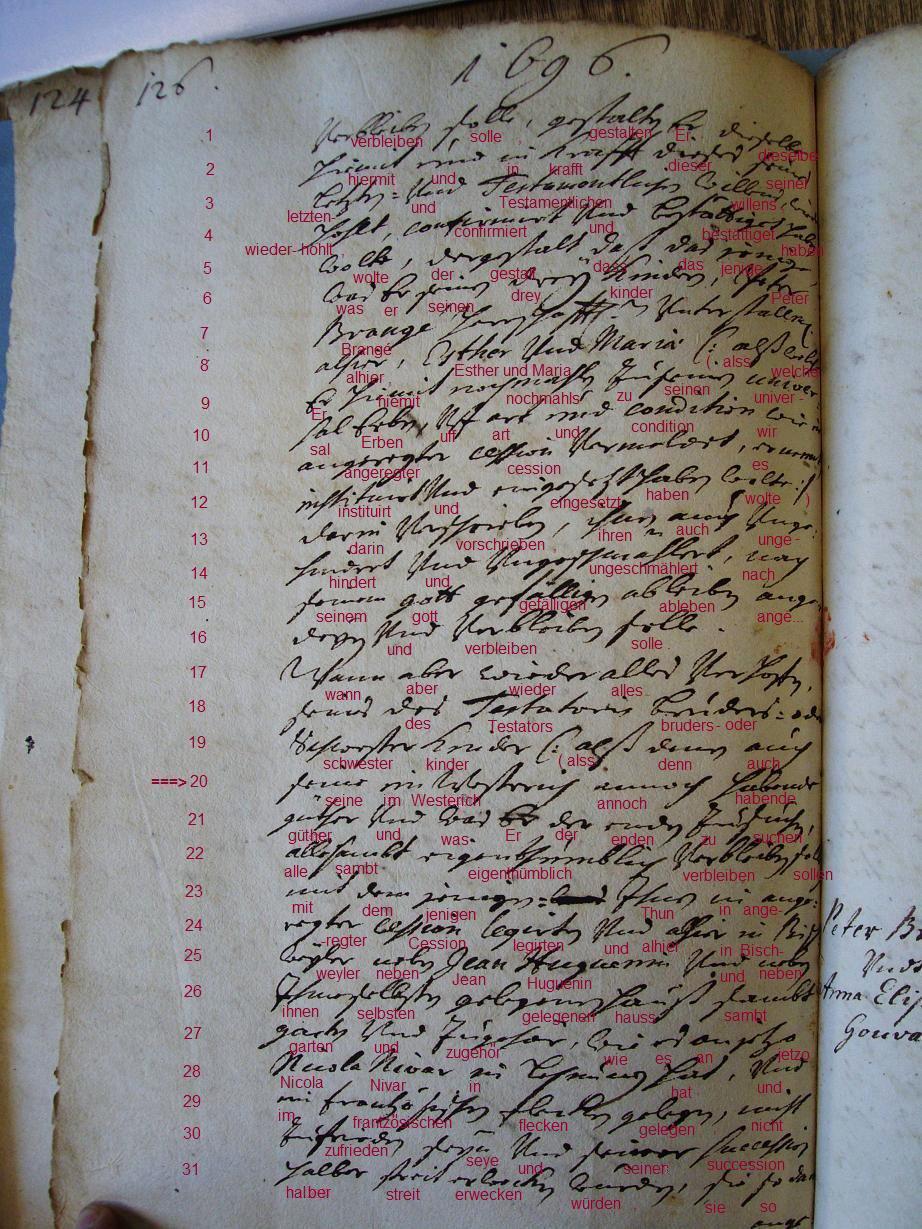 124 126. 1696.
1 verbleiben solle, gestalten Er dieselbe
2 hiermit und in krafft dieser seiner
3 letzten- und Testamentlichen willens
4 wieder-hohlt confirmiert und bestättiget haben
5 wolte der gestalt dass das jenige
6 was er seinen drey kinder Peter
7 Brangé
8 alhier Esther und Maria (: alss welche
9 Er hiemit nochmahls zu seinen univer-
10 sal Erben uff art und condition wir
11 angeregter cession es
12 instituirt und eingesetzt haben wolte :)
13 darin vorschrieben ihren auch unge-
14 hindert und ungeschmählert nach
15 seinem gott gefälligen ableben ange...
16 und verbleiben solle.
17 wann aber wieder alles
18 des Testators bruders- oder
19 schwester kinder (: alss denn auch
===>20 seine im Westerich annoch habende
21 güther und was Er der enden zu suchen
22 alle sambt eigenthümblich verbleiben sollen
23 mit dem jenigen Thun in ange-
24 -regter Cession legirten und alhier in Bisch-
25 weyler neben Jean Huguenin und neben
26 ihnen selbsten gelegenen hauss sambt
27 garten und zugehör wie es an jetzo
28 Nicola Nivar in hat und
29 im frantzösischen flecken gelegen nicht
30 zufrieden seye und seiner succession
31 halber streit erwecken würden sie so
Peter
Unds
Anna